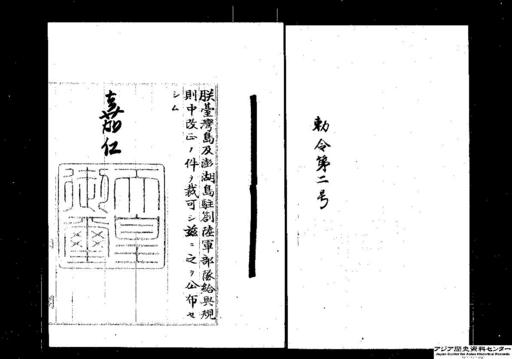 勅令第二号
朕臺灣島及澎湖島駐劄陸軍部隊給與規
則中改正ノ件ヲ裁可シ茲ニ之ヲ公布セ
シム
嘉仁
天皇御璽
アジア歴史資料センター
Japan Center for Asian Historical Records